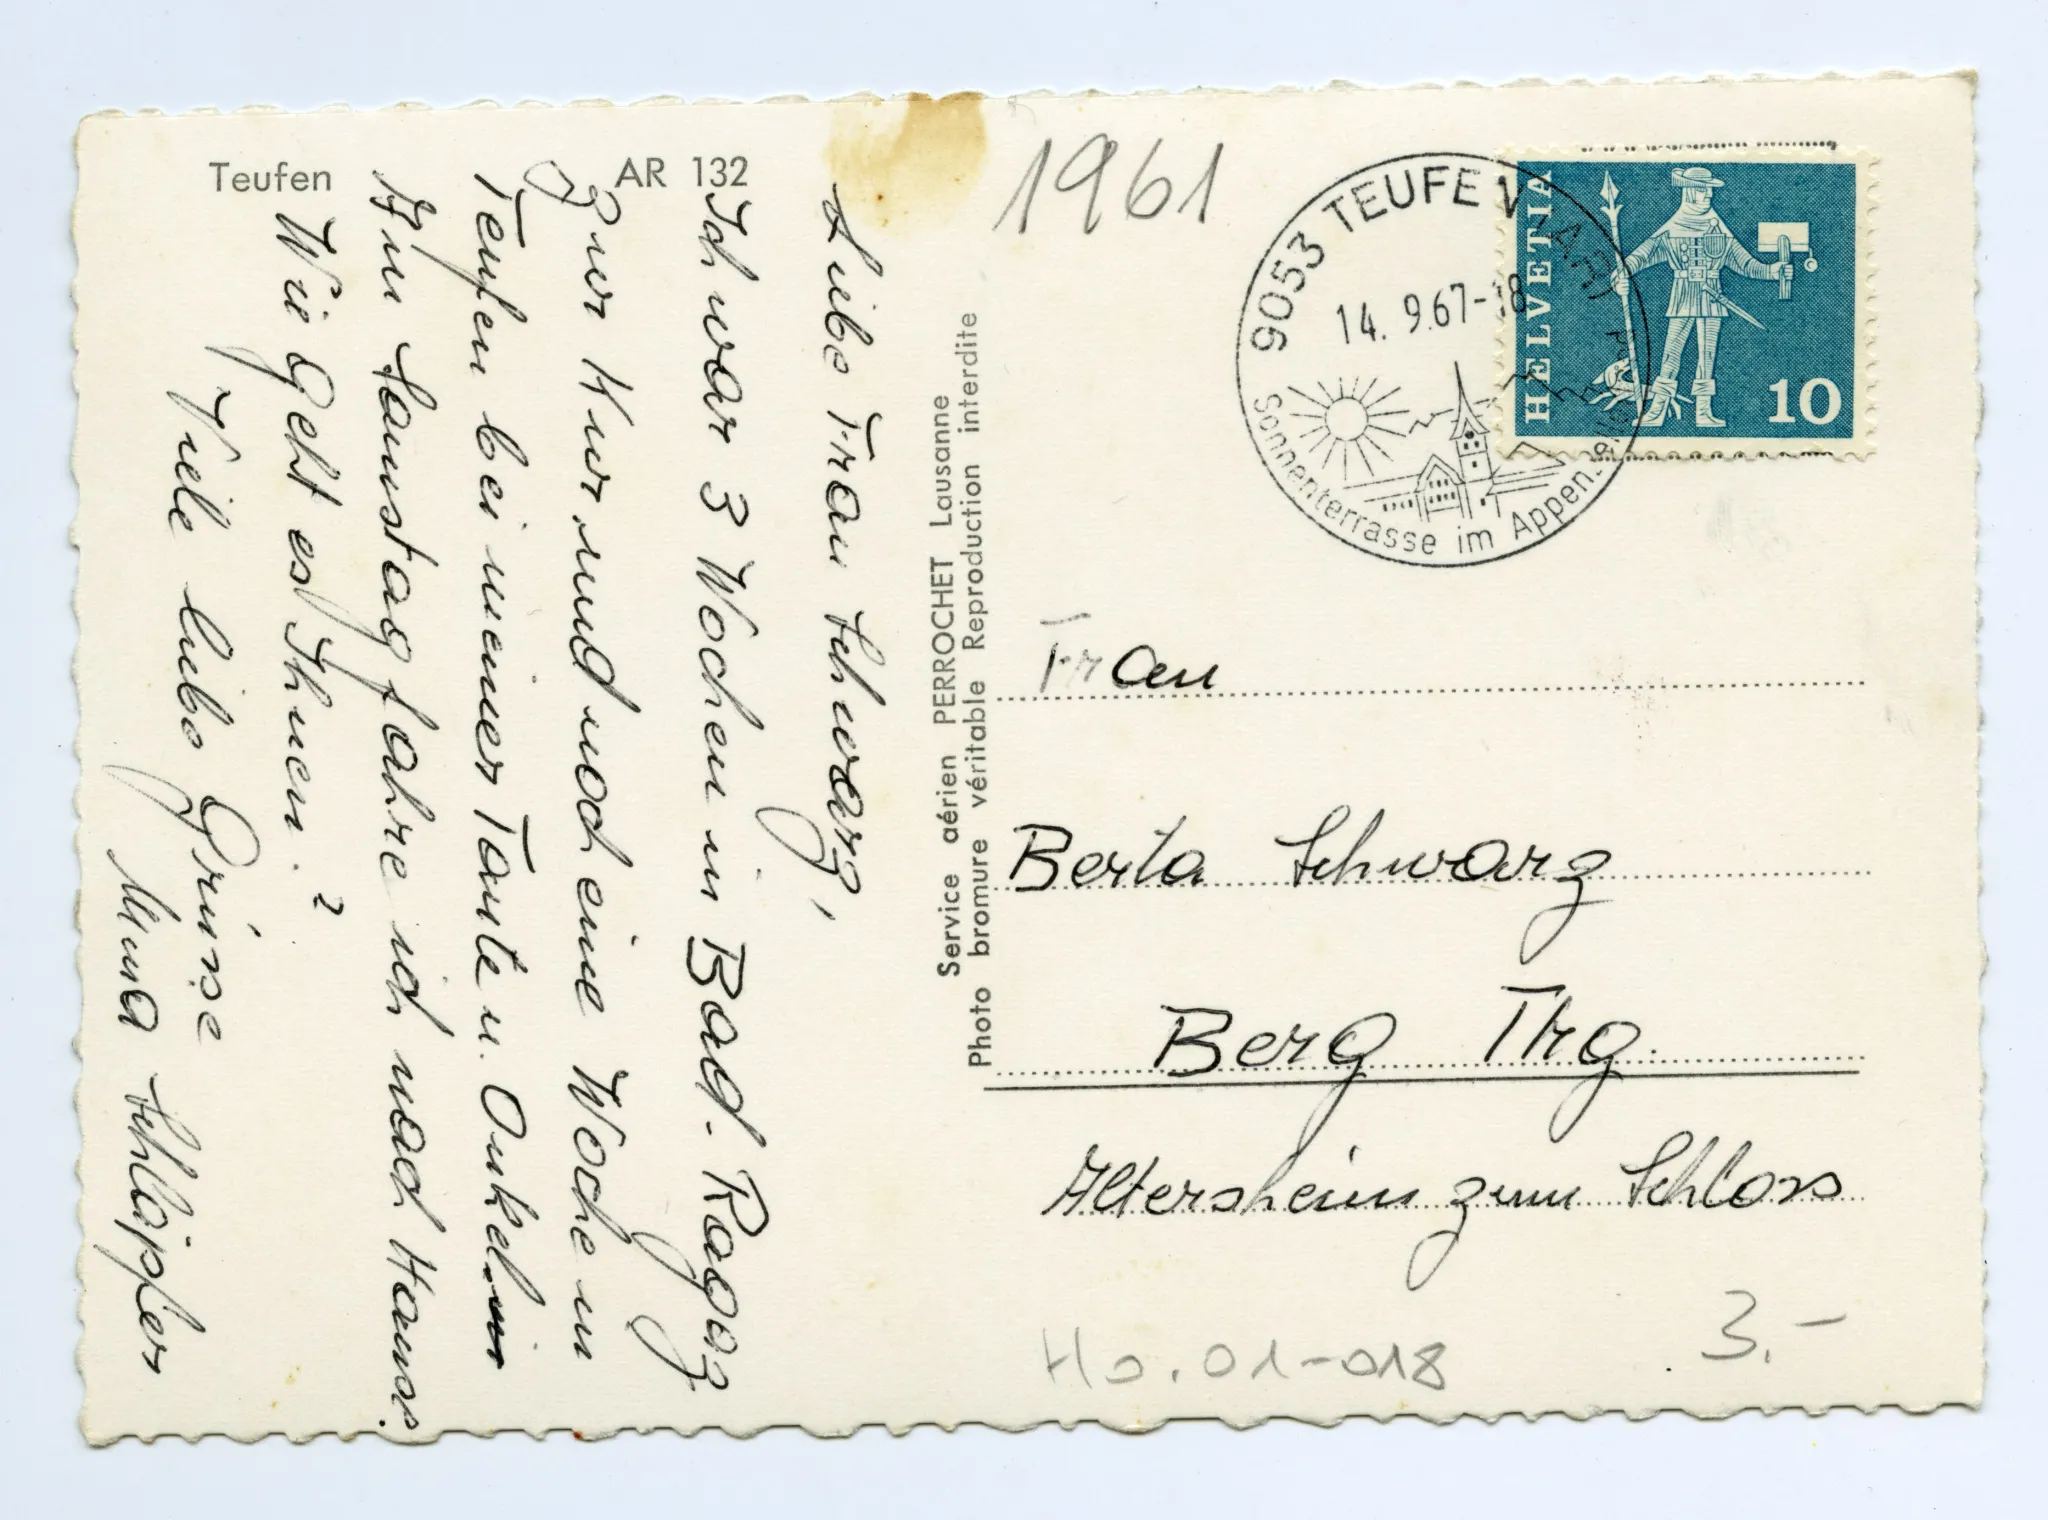 Teufen
AR 132
Liebe Frau Schwarz,
Ich war 3 Wochen in Bad-Ragaz
zur Kur und noch eine Woche in
Teufen bei meiner Tante u. Onkel
Am Samstag fahre ich nach Haus.
Wie geht es Ihnen?
Viele liebe Grüsse
Schläpfer
Service aérien PERROCHET Lausanne
Photo bromure véritable Reproduction interdite
1961
9053 TEUFEN (AR)
14. 9.67-18
Sonnenterrasse im Appen
HELVETIA
10
Frau
Berta Schwarz
Berg Thg.
Altersheim zum Schloss
Ho.01-018
3.-